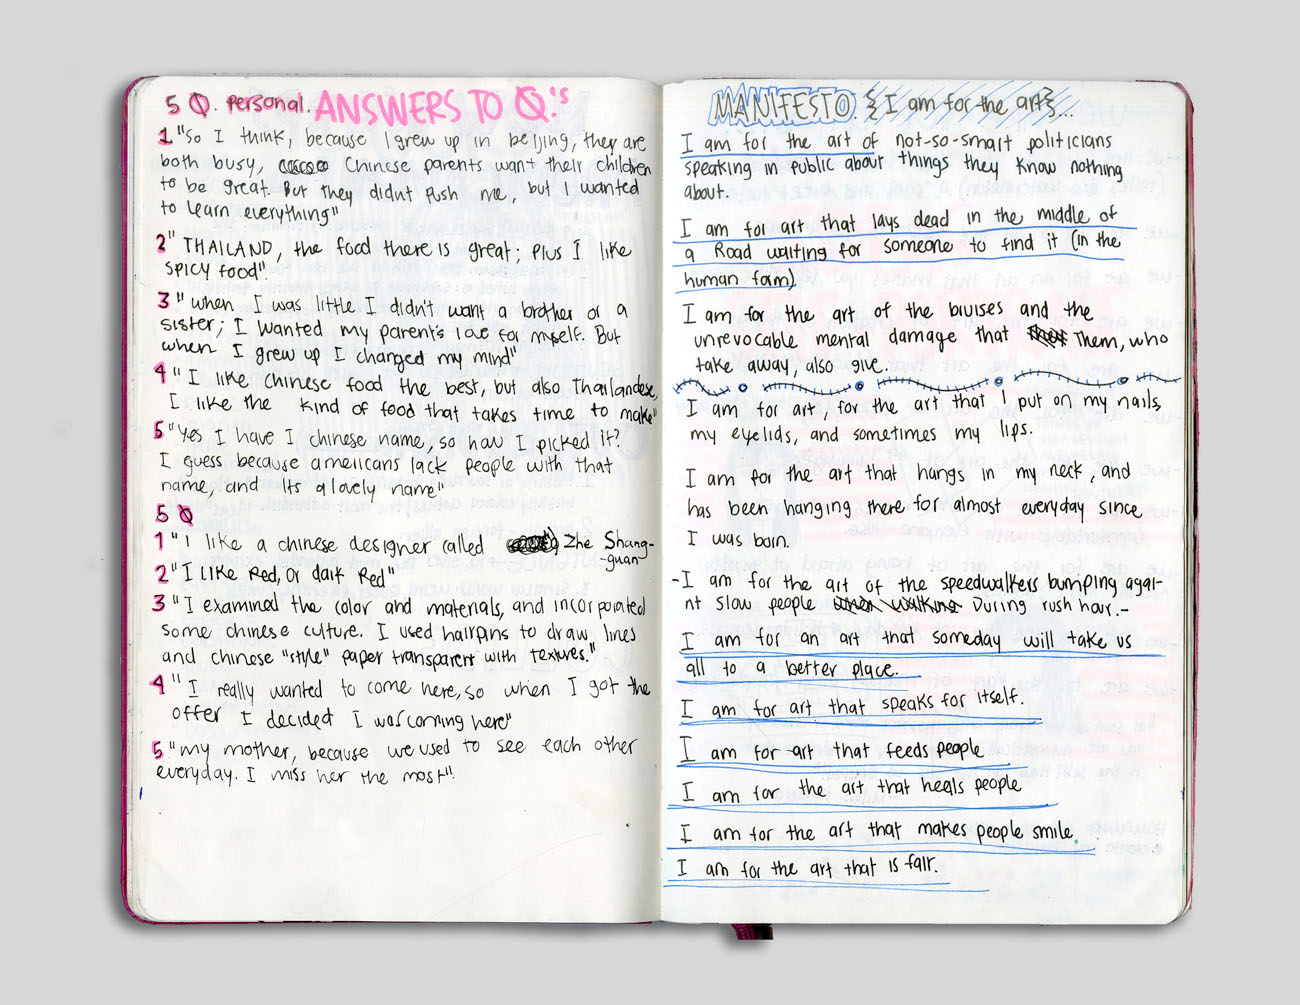 5 Q. Personal. ANSWERS TO Q.'s
1 "So I think, because I grew up in beijing, they are
both busy, Chinese parents want their children
to be great. But they didnt push me, but I wanted
to learn everything"
2 "THAILAND, the food there is great; plus I like
spicy food".
3 "when I was little I didn't want a brother or a
sister; I wanted my parent's love for myself. But
when I grew up I changed my mind"
4 "I like chinese food the best, but also Thailandese,
I like the kind of food that takes time to make"
5 "Yes I have 1 chinese name, so how I picked it?
I guess because americans lack people with that
name, and Its a lovely name"
5 Q
1 "I like a chinese designer called Zhe Shang-
-guan-
2 "I like Red, or dark Red"
3 "I examined the color and materials, and incorporated
some chinese culture. I used hairpins to draw lines
and chinese "style" paper transparent with textures."
4 "I really wanted to come here, so when I got the
offer I decided I was coming here"
5 "my mother, because we used to see each other
everyday. I miss her the most".
MANIFESTO. {I am for the art}...
I am for the art of not-so-smart politicians
speaking in public about things they know nothing
about.
I am for art that lays dead in the middle of
a Road waiting for someone to find it (in the
human form)
I am for the art of the bruises and the
unrevocable mental damage that Them, who
take away, also give.
I am for art, for the art that I put on my nails,
my eyelids, and sometimes my lips.
I am for the art that hangs in my neck, and
has been hanging there for almost everyday since
I was born.
-I am for the art of the speedwalkers bumping agai-
nt slow people when walking During rush hour.-
I am for an art that someday will take us
all to a better place.
I am for art that speaks for itself.
I am for art that feeds people
I am for the art that heals people
I am for the art that makes people smile.
I am for the art that is fair.